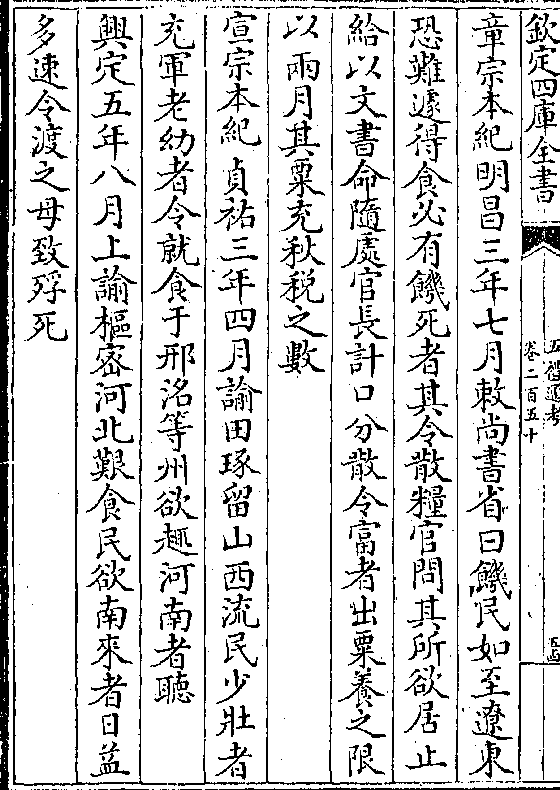 欽定四庫全書
五禮通考
卷二百五十
章宗本紀明昌三年七月敕尚書省曰饑民如至遼東
恐難遽得食必有饑死者其令散糧官問其所欲居止
給以文書命隨處官長計口分散令富者出粟養之限
以兩月其粟充秋税之數
宣宗本紀貞祐三年四月諭田琢留山西流民少壯者
充軍老幼者令就食于邢洺等州欲趣河南者聽
興定五年八月上諭樞密河北艱食民欲南來者日益
多速令渡之毋致殍死